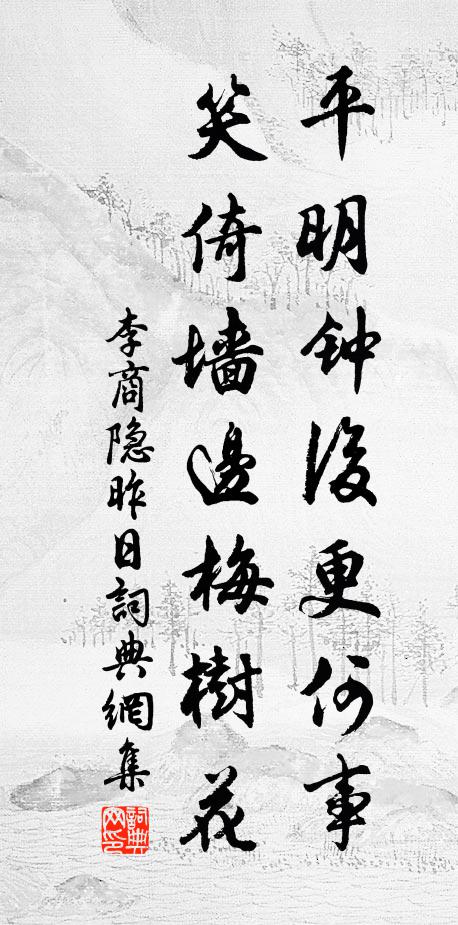 平明钟後更何事
笑倚墙邊梅樹花
李商隐昨日詞典網集
詞典网印